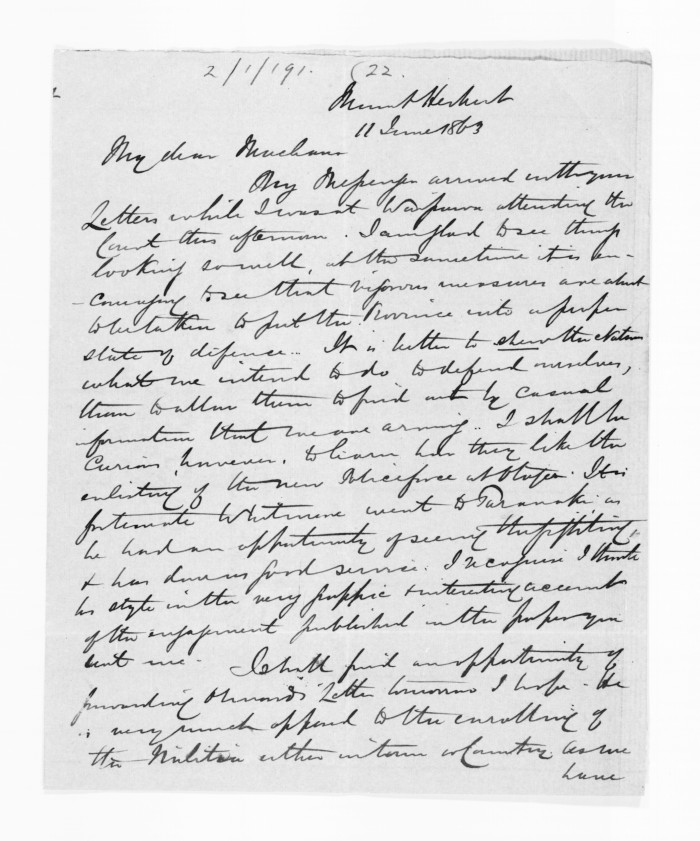 2/1/191. (22.
Mount Herbert
11 June 1863
My dear Maclean
My Messenger arrived with your
Letters while I was at Waipawa attending the
Court this afternoon. I am glad to see things
looking so well, at the same time it is en-
-couraging to see that vigorous measures are about
to be taken to put the Province into a proper
state of defence.. It is better to shew the Natives
what we intend to do to defend ourselves,
than to allow them to find out by casual
information that we are arming.. I shall be
curious, however, to learn how they like the
enlisting of the new Police force at Napier. It is
fortunate Whitmore went to Taranaki as
he had an opportunity of seeing the fighting,
& has done us good service. I recognise I think
his style in the very graphic & interesting account
of the engagement published in the paper you
sent me - I shall find an opportunity of
forwarding Ormond's Letter tomorrow I hope - He
is very much opposed to the enrolling of
the Militia either in town or Country as we
have